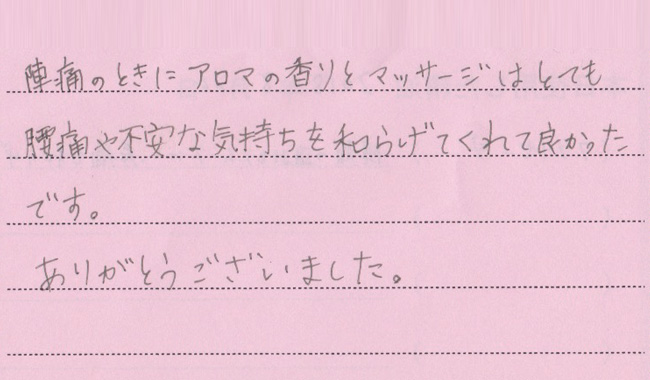 陣痛のときにアロマの香りとマッサージはとても
腰痛や不安な気持ちを和らげてくれて良かった
です。
ありがとうございました。